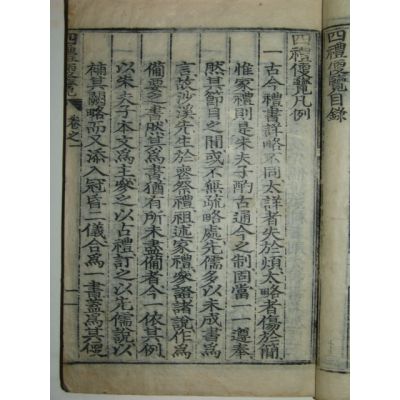 四禮便覽目錄
四禮便覽凡例
一古今禮書詳略不同太詳者失於煩太略者傷於簡
惟家禮則是朱夫子酌古通今之制固當一遵奉
然其節目之間或不無疏略處先儒多以未成書
言故沙溪先生於喪祭禮祖述家禮參證諸說作爲
備要之書然其爲書猶有所未盡備者今一依其例
以朱夫子本文爲主參之以古禮訂之以先儒說以
補其闕略而又添入冠昏二儀合爲一書蓋爲其便
四禮便覽 卷之一